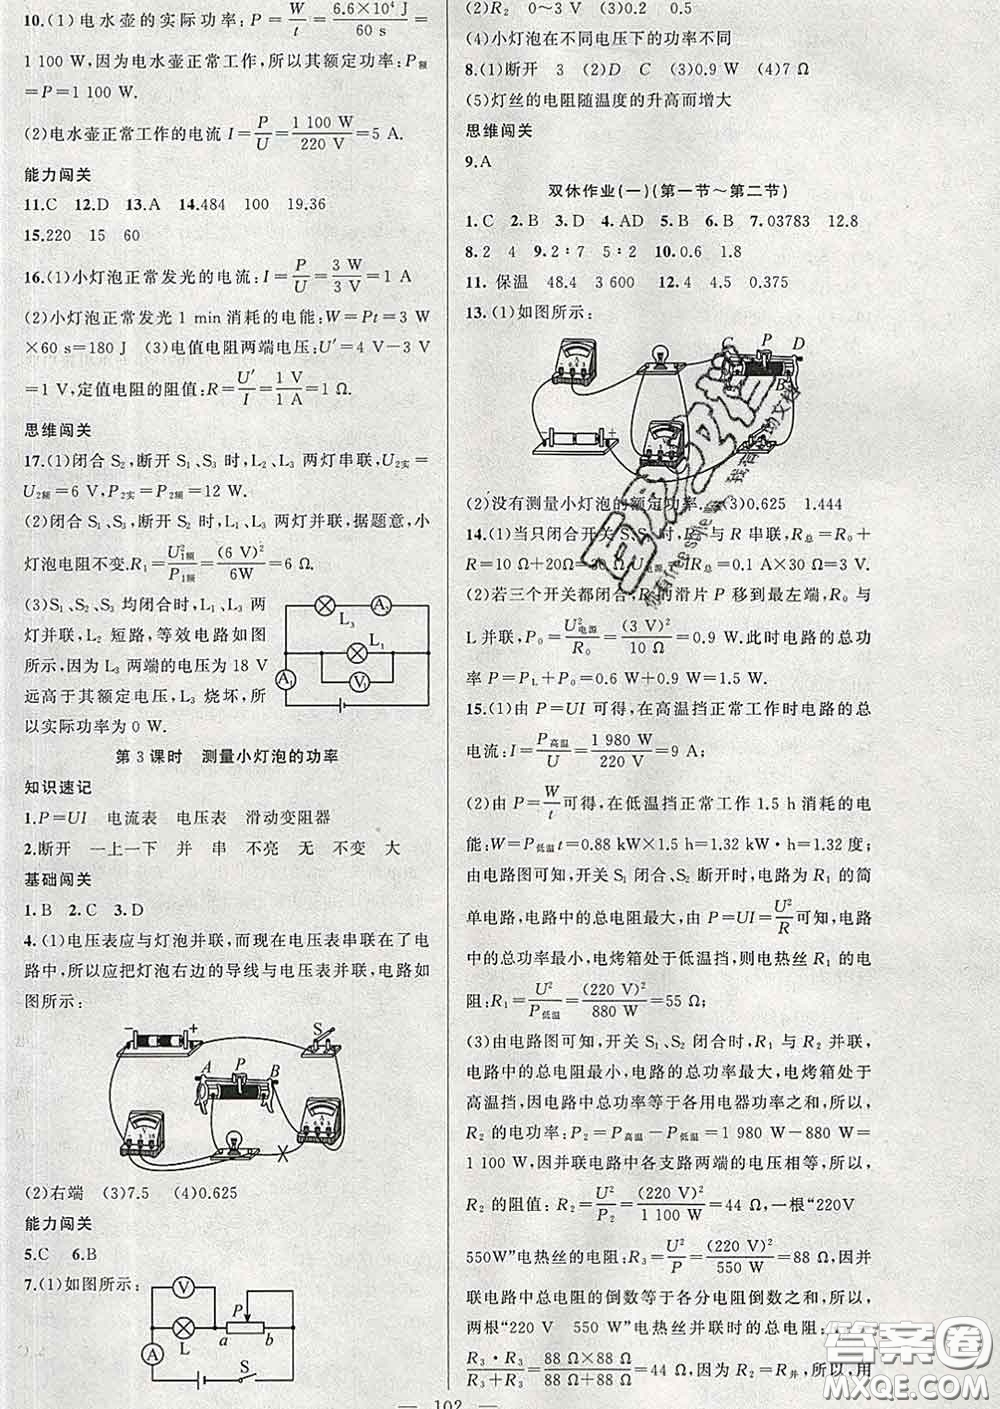 10.(1)电水壶的实际功率:P=W/t=6.6×10⁴ J/60 s=
1 100 W,因为电水壶正常工作,所以其额定功率:P额
=P=1 100 W.
(2)电水壶正常工作的电流 I=P/U=1 100 W/220 V=5 A.
能力闯关
11.C 12.D 13.A 14.484 100 19.36
15.220 15 60
16.(1)小灯泡正常发光的电流:I=P/U=3 W/3 V=1 A
(2)小灯泡正常发光 1 min 消耗的电能:W=Pt=3 W
×60 s=180 J (3)电值电阻两端电压:U′=4 V-3 V
=1 V,定值电阻的阻值:R=U′/I=1 V/1 A=1 Ω.
思维闯关
17.(1)闭合 S₂,断开 S₁、S₃ 时,L₂、L₃ 两灯串联,
U₂实=U₂额=6 V,P₂实=P₂额=12 W.
(2)闭合 S₁、S₃,断开 S₂ 时,L₁、L₃ 两灯并联,据题意,小
灯泡电阻不变.R₁=U²₁额/P₁额=(6 V)²/6W=6 Ω.
(3)S₁、S₂、S₃ 均闭合时,L₁、L₃ 两
灯并联,L₂ 短路,等效电路如图
所示,因为 L₃ 两端的电压为 18 V
远高于其额定电压,L₃ 烧坏,所
以实际功率为 0 W.
L₃ A₂
L₁
A₁ V₁
第 3 课时 测量小灯泡的功率
知识速记
1.P=UI 电流表 电压表 滑动变阻器
2.断开 一上一下 并 串 不亮 无 不变 大
基础闯关
1.B 2.C 3.D
4.(1)电压表应与灯泡并联,而现在电压表串联在了电
路中,所以应把灯泡右边的导线与电压表并联,电路如
图所示:
- + S
A P B
(2)右端 (3)7.5 (4)0.625
能力闯关
5.C 6.B
7.(1)如图所示:
V P
L a b
A
S
(2)R₂ 0~3 V (3)0.2 0.5
(4)小灯泡在不同电压下的功率不同
8.(1)断开 3 (2)D C (3)0.9 W (4)7 Ω
(5)灯丝的电阻随温度的升高而增大
思维闯关
9.A
双休作业(一)(第一节~第二节)
1.C 2.B 3.D 4.AD 5.B 6.B 7.03783 12.8
8.2 4 9.2∶7 5∶2 10.0.6 1.8
11. 保温 48.4 3 600 12.4 4.5 0.375
13.(1)如图所示:
C P D
B
- +
(2)没有测量小灯泡的额定功率. (3)0.625 1.444
14.(1)当只闭合开关 S、S₁ 时,R₀ 与 R 串联,R总=R₀+
R=10 Ω+20Ω=30 Ω.U电源=IR总=0.1 A×30 Ω=3 V.
(2)若三个开关都闭合,R₀的滑片 P 移到最左端,R₀ 与
L 并联,P₀=U²电源/R₀=(3 V)²/10 Ω=0.9 W.此时电路的总功
率 P=P_L+P₀=0.6 W+0.9 W=1.5 W.
15.(1)由 P=UI 可得,在高温挡正常工作时电路的总
电流:I=P高温/U=1 980 W/220 V=9 A;
(2)由 P=W/t可得,在低温挡正常工作 1.5 h 消耗的电
能:W=P低温t=0.88 kW×1.5 h=1.32 kW·h=1.32 度;
由电路图可知,开关 S₁ 闭合、S₂ 断开时,电路为 R₁ 的简
单电路,电路中的总电阻最大,由 P=UI=U²/R可知,电路
中的总功率最小,电烤箱处于低温挡,则电热丝 R₁ 的电
阻:R₁=U²/P低温=(220 V)²/880 W=55 Ω;
(3)由电路图可知,开关 S₁、S₂ 闭合时,R₁ 与 R₂ 并联,
电路中的总电阻最小,电路的总功率最大,电烤箱处于
高温挡,因电路中总功率等于各用电器功率之和,所以,
R₂ 的电功率:P₂=P高温-P低温=1 980 W-880 W=
1 100 W,因并联电路中各支路两端的电压相等,所以,
R₂ 的阻值:R₂=U²/P₂=(220 V)²/1 100 W=44 Ω,一根“220V
550W”电热丝的电阻:R₃=U²/P=(220 V)²/550 W=88 Ω,因并
联电路中总电阻的倒数等于各分电阻倒数之和,所以,
两根“220 V 550 W”电热丝并联时的总电阻:
R₃·R₃/R₃+R₃=88 Ω×88 Ω/88 Ω+88 Ω=44 Ω,因为 R₂=R并,所以,用
答案圈
MXQE.COM
— 102 —